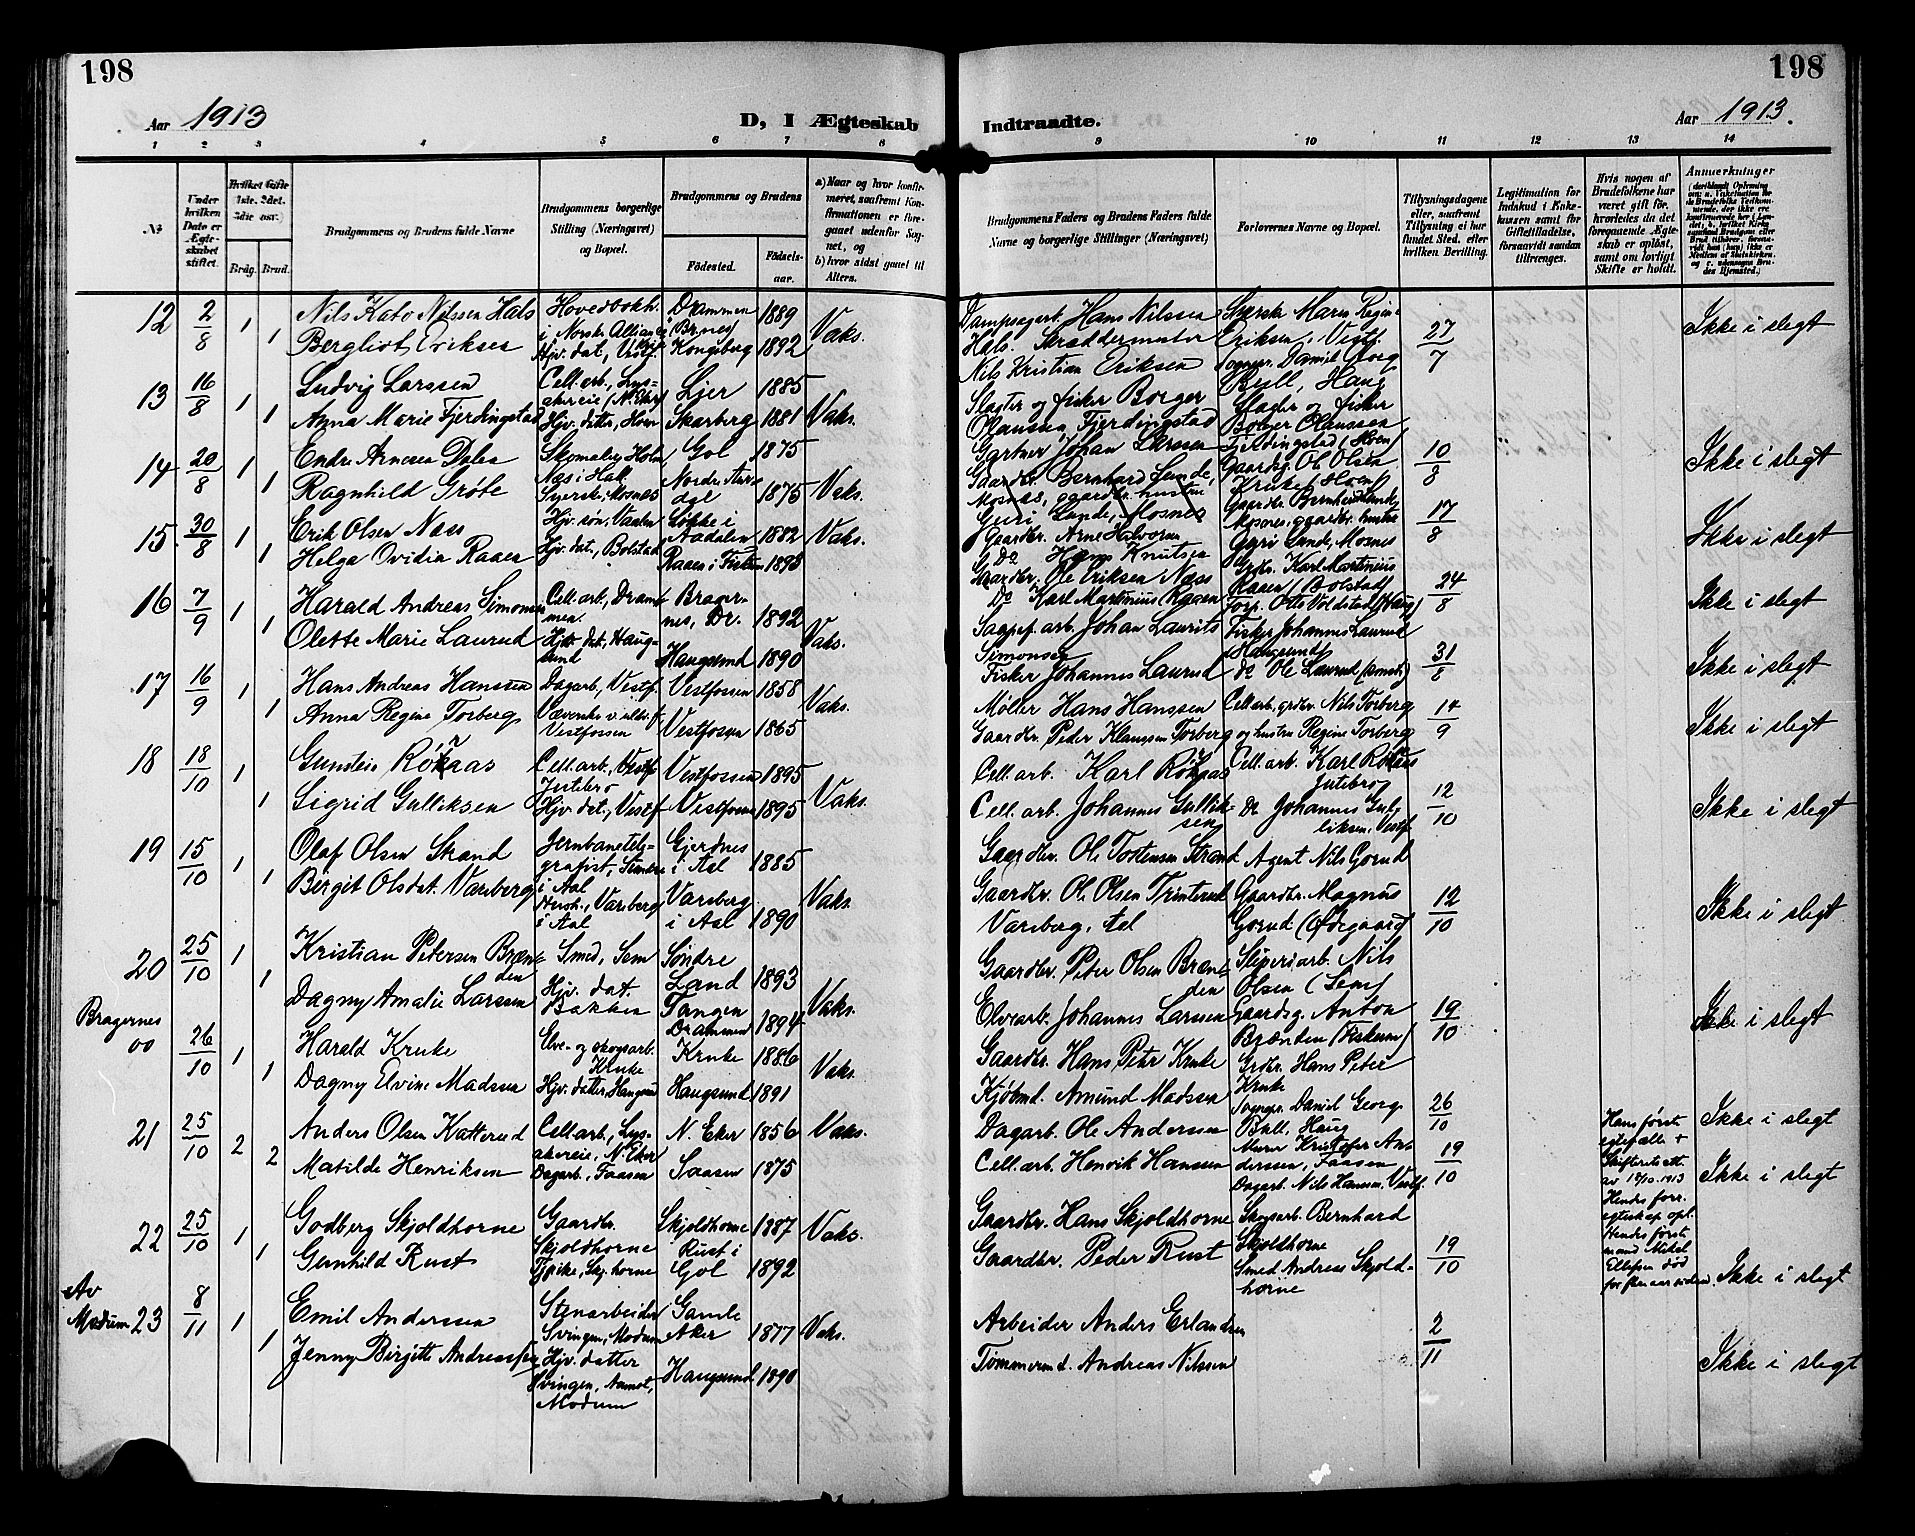 198
Aar 1913
D, I Ægteskab
1 2 3 4 5 6 7 8
№
Under hvilken Dato er Ægteskabet stiftet.
Hvilket Gifte (1ste. 2det. 3die osv.)
Brdg. Brud.
Brudgommens og Brudens fulde Navne
Brudgommens borgerlige Stilling (Næringsvei) og Bopæl.
Brudgommens og Brudens
Födested.
Födselsaar.
a) Naar og hvor konfirmeret, saafremt Konfirmationen er foregaaet udenfor Sognet, og
b) hvor sidst gaaet til Alters.
12 2/8 1 Nils Kato Nilssen Hals Hovedbokh. Drammen 1889 Vaks.
i Norsk (Brnes)
1 Bergliot Eriksen Hjv. dat, Vestf. Kongsberg 1892
13 16/8 1 Ludvig Larssen Cell. arb., Lys- Lier 1885 Vaks.
akereie (N. Eker)
1 Anna Marie Fjerdingstad Hjv. datter, Hoen Skarberg 1881
14 20/8 1 Endre Arnesen Dalen Gol 1875 Vaks.
Næs i Hall.
1 Ragnhild Grøte Mosnæs Nordre 1875
15. 30/8 1 Erik Olsen Næss Hjv. søn, Søkke i Aadalen 1882 Vaks.
1 Helga Ovidia Raaen Hjv. dat., Bolstad Raaen i Fiskum 1893
16 7/9 1 Harald Andreas Simonsen Cell. arb., Dram- Brager- 1892 Vaks.
men. nes, Dr.
1 Olette Marie Laurud Hjv. dat, Haug- Haugsund 1890
sund
17 16/9 1 Hans Andreas Hanssen Dagarb., Vestf. Vestfossen 1858 Vaks.
1 Anna Regine Torberg Væverske v. Vestfossen 1865
Vestfossen
18 18/10 1 Gunstein Röraas Cell. arb., Vestf. Vestfossen 1895 Vaks.
Jutebro
1 Sigrid Gulliksen Hjv. dat., Vestf. Vestfossen 1895
19 15/10 1 Olaf Olsen Strand Jernbanetele- Gjerdnes 1885 Vaks.
grafist, i Aal
i Aal
1 Birgit Olsdat. Varsberg Varsberg Varsberg 1890
i Aal i Aal
20 25/10 1 Kristian Petersen Bræn- Smed, Sem Söndre 1893 Vaks.
den Land
1 Dagny Amalie Larssen Hjv. dat. Tangen 1894
Bakken Drammen
Bragernes
00 26/10 1 Harald Kruke Elve- og skogsarb. Kruke 1886 Vaks.
Kruke
1 Dagny Elvine Madssen Hjv. datter, Haugsund Haugsund 1891
21 25/10 2 Anders Olsen Katterud Cell. arb., Lys- N. Eker 1856 Vaks.
akereie, N. Eker
2 Matilde Henriksen Dagarb., Faasen Saasen 1875
22 25/10 1 Godberg Skjoldhorne Gaardbr. Skjoldhorne 1887 Vaks.
Skjoldhorne
1 Gunhild Rust Pike, Skj. horne Rust i Gol 1892
Av
Modum 23 8/11 1 Emil Anderssen Stenarbeider Gamle 1877 Vaks.
Svingen, Modum Aker
1 Jenny Birgitte Hjv. datter Haugsund 1890
Svingen, Aamot,
Modum
198
Indtraadte.
Aar 1913.
9 10 11 12 13 14
Brudgommens Faders og Brudens Faders fulde Navne og borgerlige Stillinger (Næringsvei)
Forlovernes Navne og Bopæl.
Tillysningsdagene eller, saafremt Tillysning ei har fundet Sted, efter hvilken Bevilling.
Legitimation for Indskud i Enkekassen samt for Giftetilladelse, forsaavidt saadan tiltrænges.
Hvis nogen af Brudefolkene har været gift för, hvorledes da det foregaaende Ægteskab er oplöst, samt om lovligt Skifte er holdt.
Anmerkninger
Dampsagarb. Hans Nilssen Syerske Marie Regine
Hals. Skræddermester Eriksen, Vestf. 27/7 Ikke i slegt
Nils Kristian Eriksen Sognepr. Daniel Georg
Slagter og fisker Borger Bull, Haug
Olaussen Fjerdingstad Slagter og fisker
Borger Olaussen
Gartner Johan Larssen Fjerdingstad (Hoen) 10/8 Ikke i slegt
Gaardbr. Bernhard Lunde, Gaardbr. Ole Olsen
Mosnæs, gaardbr. hustru Kruke (Hoen)
Guri Lunde, Mosnes Gaardbr. Bernhard Lunde, 17/8 Ikke i slegt
Gaardbr. Arne Halvorsen Mosnes, gaardbr. hustru
Do Hans Knutsen Guri Lunde, Mosnes
Gaardbr. Ole Eriksen Næss Grdbr. Karl Martinius 24/8 Ikke i slegt
Do Karl Martinius Raaen Raaen (Bolstad)
Forp. Otto Voldstad (Haug)
Johan Laurits Fisker Johannes Laurud
Simonsen (Haugsund) 31/8 Ikke i slegt
Fisker Johannes Laurud do Ole Laurud
Møller Hans Hanssen Cell. arb., grdbr. Nils Torberg 14/9 Ikke i slegt
Gaardbr. Peder Klaussen Torberg og hustru Regine Torberg
Cell. arb. Karl Röraas Cell. arb. Karl Röraas
Jutebro 12/10 Ikke i slegt
Cell. arb. Johannes Gullik- Do Johannes Gul-
sen liksen, Vestf.
Gaardbr. Ole Tostensen Strand Agent Nils Gorud
Gaardbr. Ole Olsen Trinterud Gaardbr. Magnus 12/10 Ikke i slegt
Varsberg, Aal Gorud (Ødegaard)
Gaardbr. Peter Olsen Bræn- Sliperiarb. Nils
den Olsen (Sem)
Elvearb. Johannes Larssen Gaardsg. Anton 19/10 Ikke i slegt
Brænden (Fiskum)
Gaardbr. Hans Peter Kruke Grdbr. Hans Peter
Kruke
Kjøbmd. Amund Madssen Sognepr. Daniel Georg 26/10 Ikke i slegt
Bull, Haug
Dagarb. Ole Anderssen Murer Kristofer An-
derssen, Faasen
Cell. arb. Henrik Hansen Dagarb. Nils Hansen, Vestf. 19/10 Ikke i slegt
Hans første
egtefælle +
Skifteretsatt.
av 18/10. 1913
Hendes forr.
egteskap opl.
Hendes første
mand Mikal
Ellefsen død
for flere aar siden
Gaardbr. Hans Skjoldhorne Skogsarb. Bernhard
Skjoldhorne
Gaardbr. Peder Rust Smed Andreas Skjold- 19/10 Ikke i slegt
horne
Arbeider Anders Erlandsen 2/11
Tømmermd. Andreas Nilssen Ikke i slegt